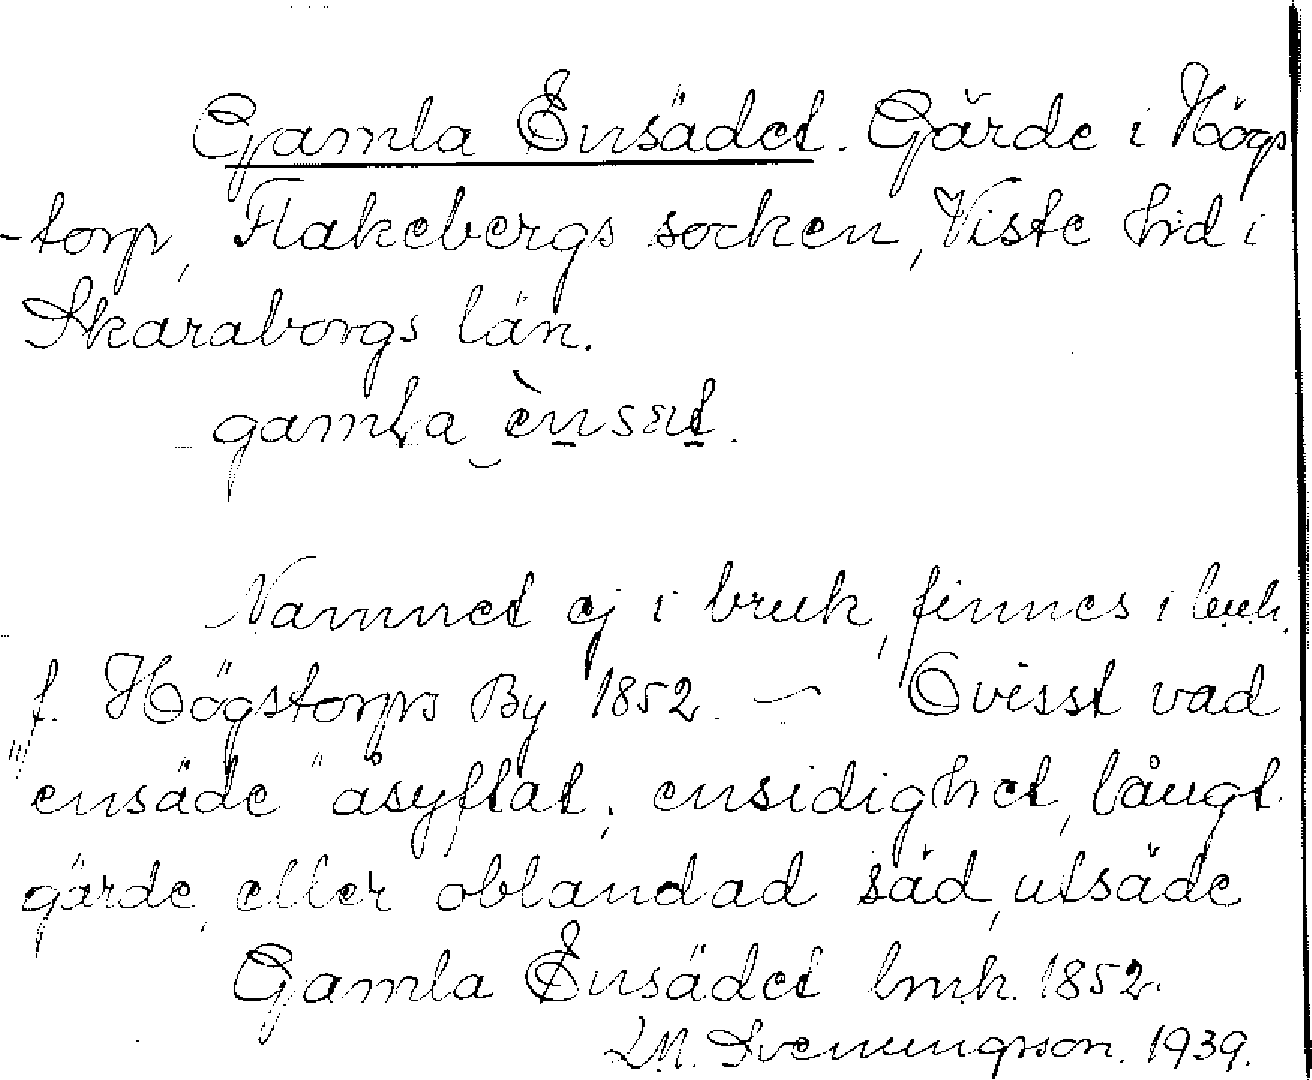 Gamla Ensädet. Gärde i Högs
-torp, Flakebergs socken, Viste hrd i
Skaraborgs län.
gamla ènsæt.
Namnet ej i bruk, finnes i lmh.
f. Högstorps By 1852. – Ovisst vad
"ensäde" åsyftat; ensidighet, långt
gärde, eller oblandad säd, utsäde
Gamla Ensädet lmh. 1852.
L.M. Svenungsson. 1939.